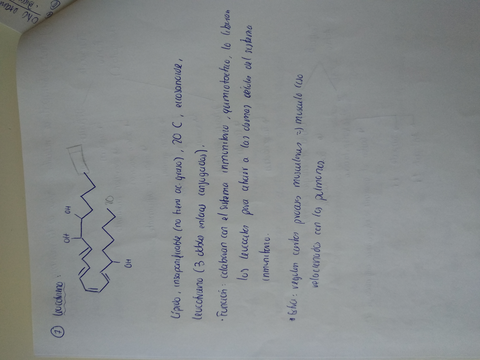 ② Leucotrieno:
OH
OH
OH
Lípido, insaponificable (no tiene ac. graso), 20 C, eicosanoide,
leucotrieno (3 dobles enlaces conjugados).
· Función: colaboran con el sistema inmunitario, quimiotáctico, lo liberan
los leucocitos para atraer a las demás células del sistema
inmunitario.
regulan ciertos procesos musculares => músculo liso
relacionado con los pulmones.